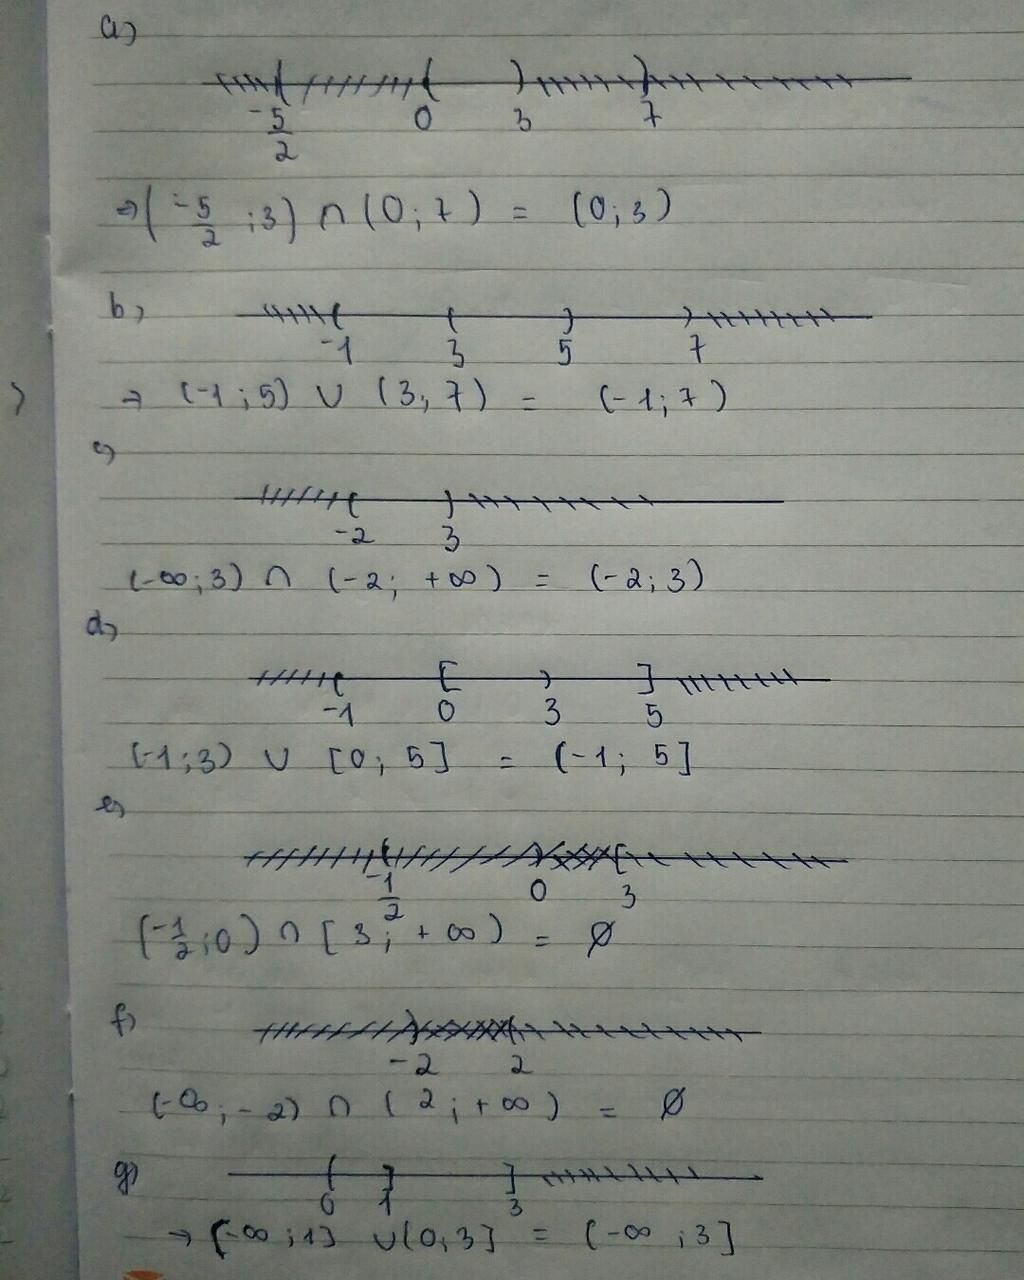 a)
-5/2 0 3 7
⇒ (-5/2 ; 3) ∩ (0 ; 7) = (0 ; 3)
b)
-1 3 5 7
⇒ (-1 ; 5) ∪ (3 ; 7) = (-1 ; 7)
c)
-2 3
(-∞ ; 3) ∩ (-2 ; +∞) = (-2 ; 3)
d)
-1 0 3 5
(-1 ; 3) ∪ [0 ; 5] = (-1 ; 5]
e)
-1/2 0 3
(-1/2 ; 0) ∩ [3 ; +∞) = ∅
f)
-2 2
(-∞ ; -2) ∩ (2 ; +∞) = ∅
g)
0 1 3
→ (-∞ ; 1] ∪ (0 ; 3] = (-∞ ; 3]